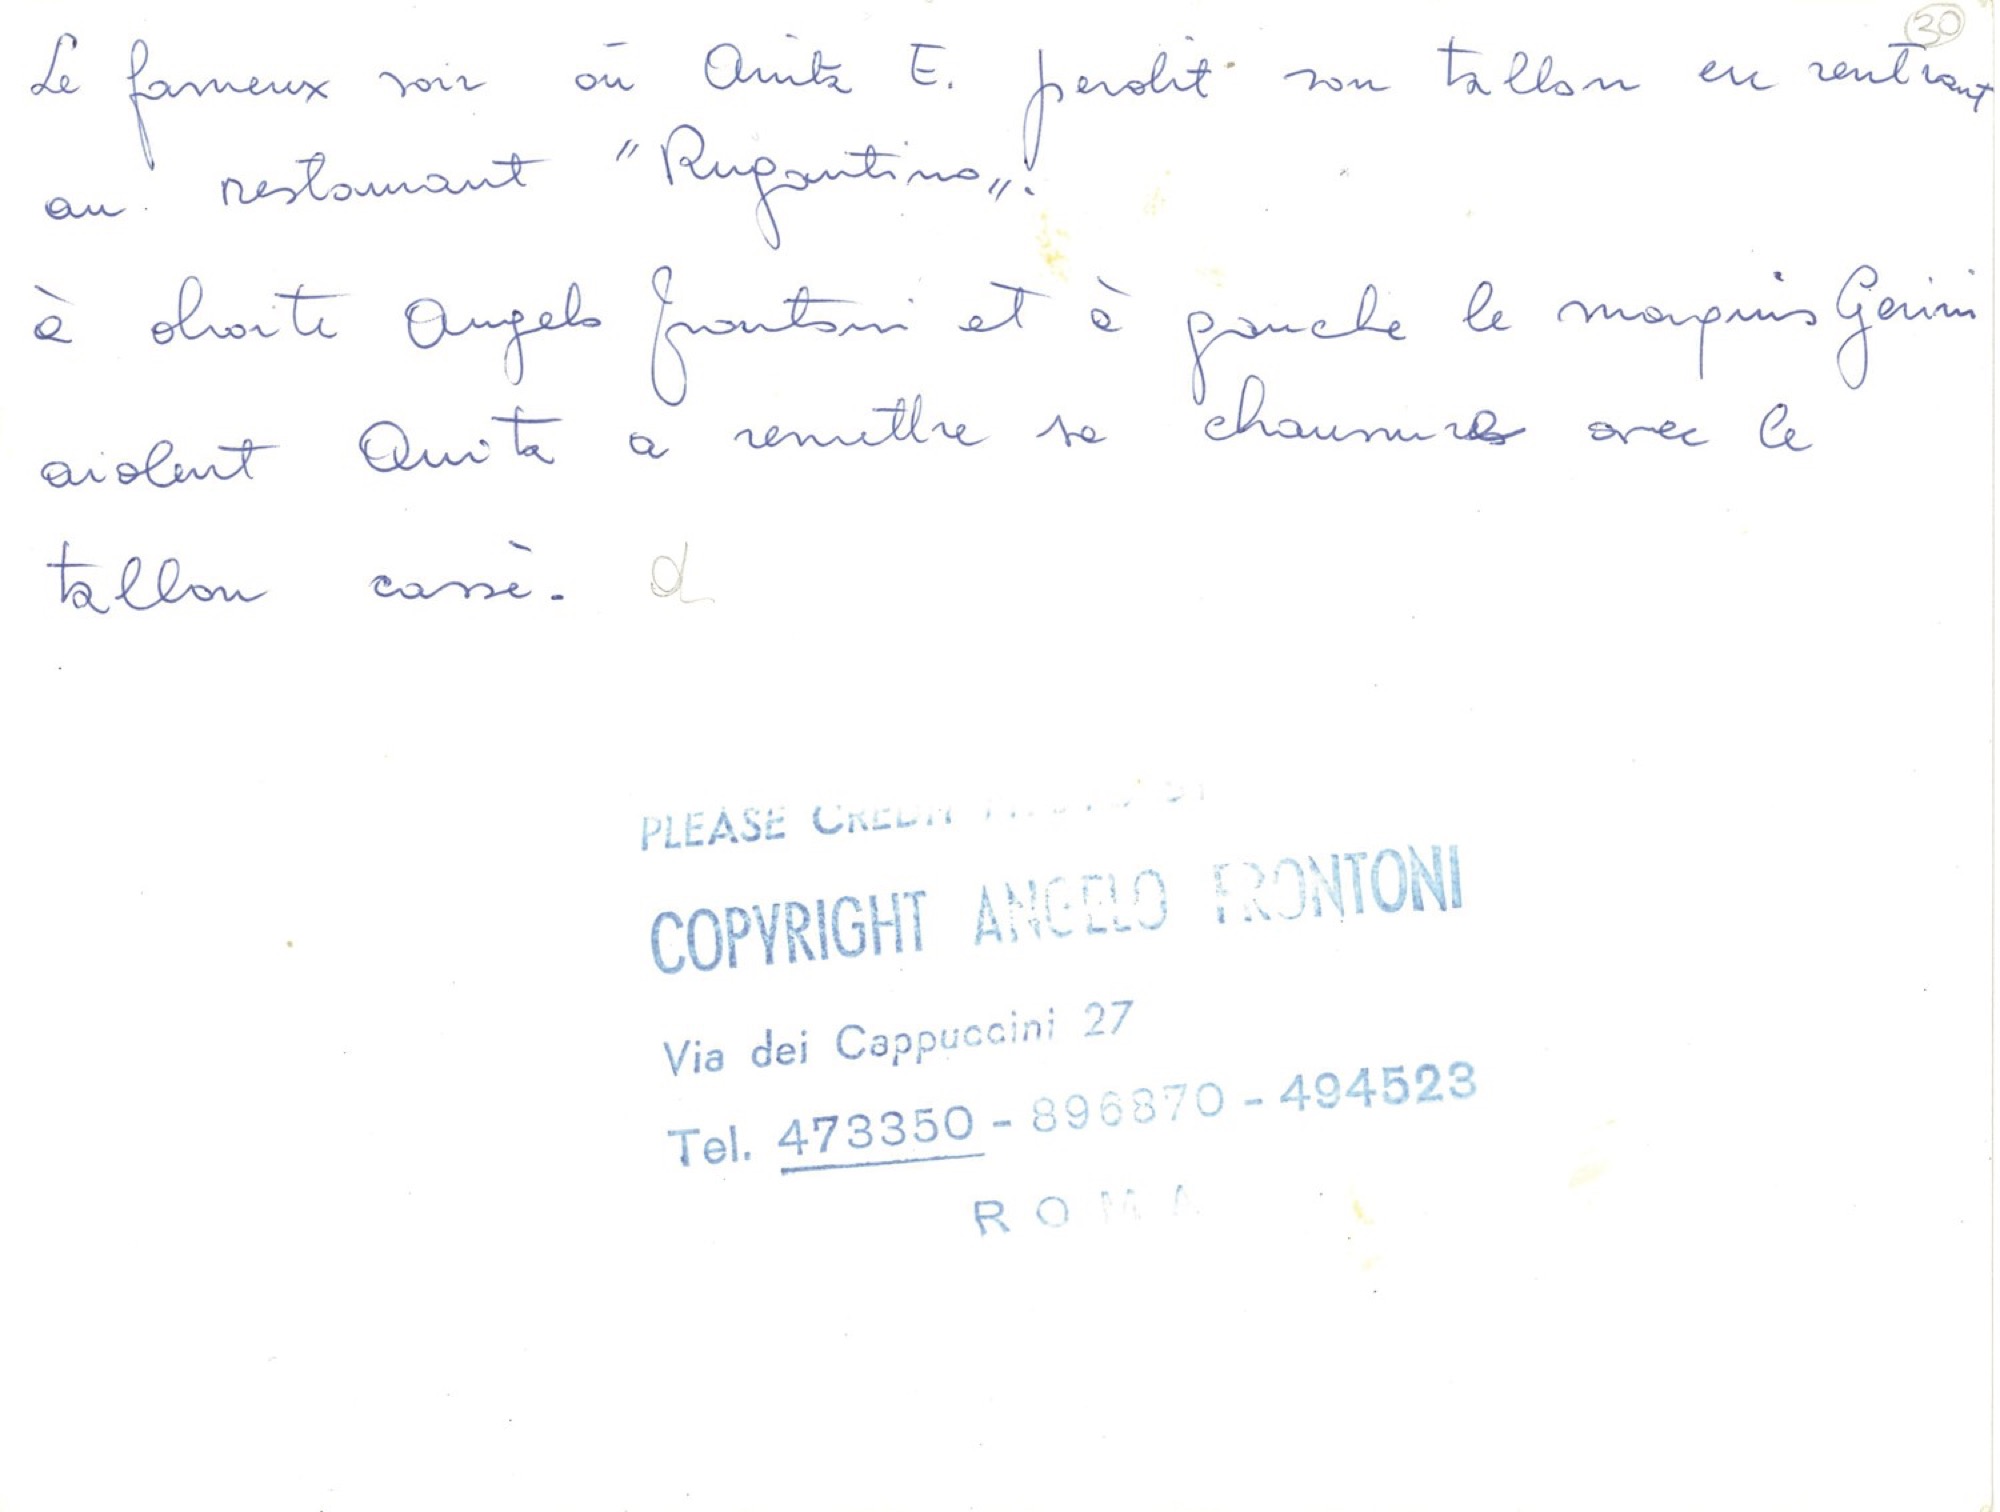 30
Le fameux soir où Anita E. perdit son tallon en rentrant
au restaurant "Rugantino".
à droite Angelo Frontoni et à gauche le marquis Gerini
aident Anita a remettre sa chaussure avec le
tallon cassè.
PLEASE CREDIT PHOTO BY
COPYRIGHT ANGELO FRONTONI
Via dei Cappuccini 27
Tel. 473350 - 896870 - 494523
ROMA